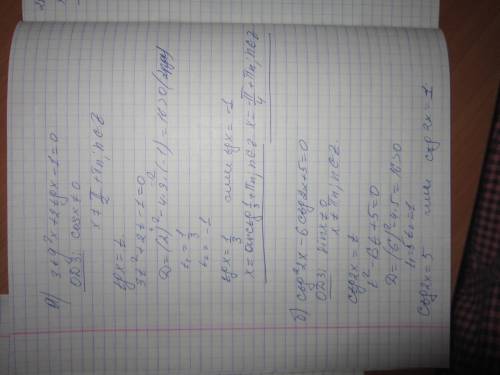 а) 3tg²x+2tgx-1=0
ОДЗ: cosx≠0
x≠π/2+πn, n∈Z
tgx=t
3t²+2t-1=0
D=(2)²-4·3·(-1)=16>0
t₁=1/3
t₂=-1
tgx=1/3 или tgx=-1
x=arctg 1/3+πn, n∈Z x=-π/4+πn, n∈Z
б) ctg²2x-6ctg2x+5=0
ОДЗ: sinx≠0
x≠πn, n∈Z
ctg2x=t
t²-6t+5=0
D=(6)²-4·5=16>0
t₁=5 t₂=1
ctg2x=5 или ctg2x=1